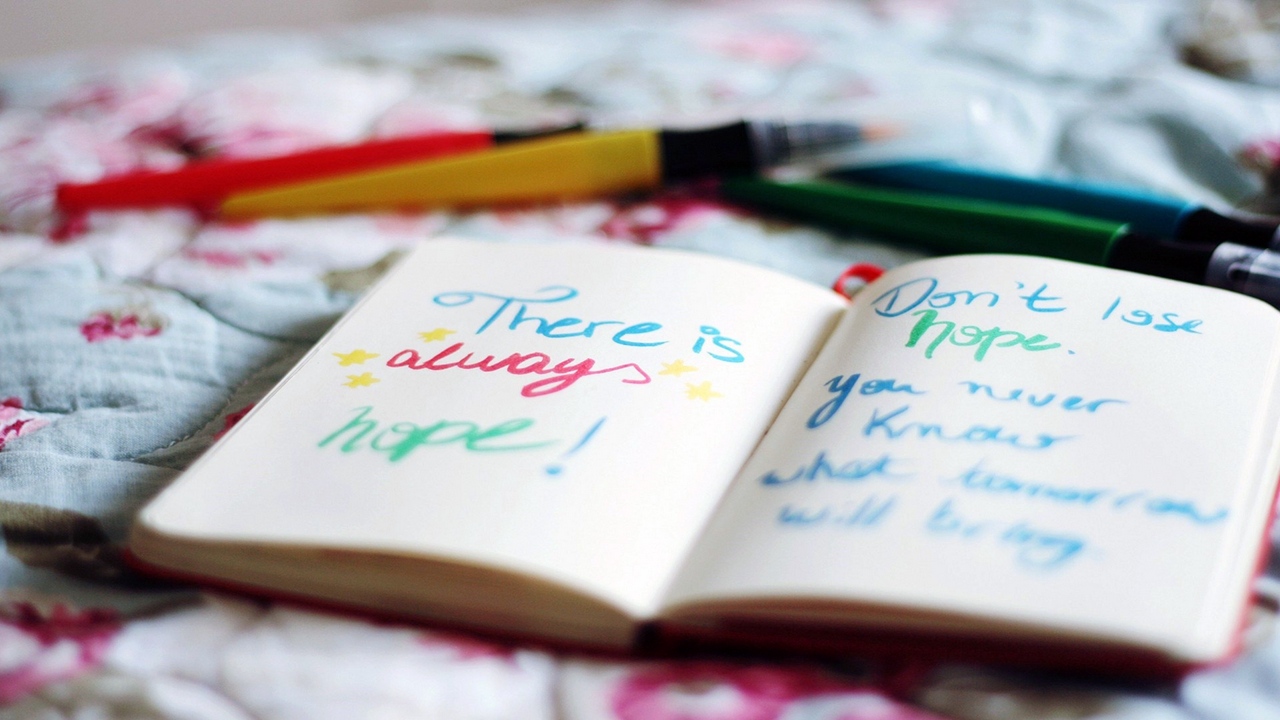 There is
always
hope!
Don't lose
hope.
you never
know
what tomorrow
will bring.